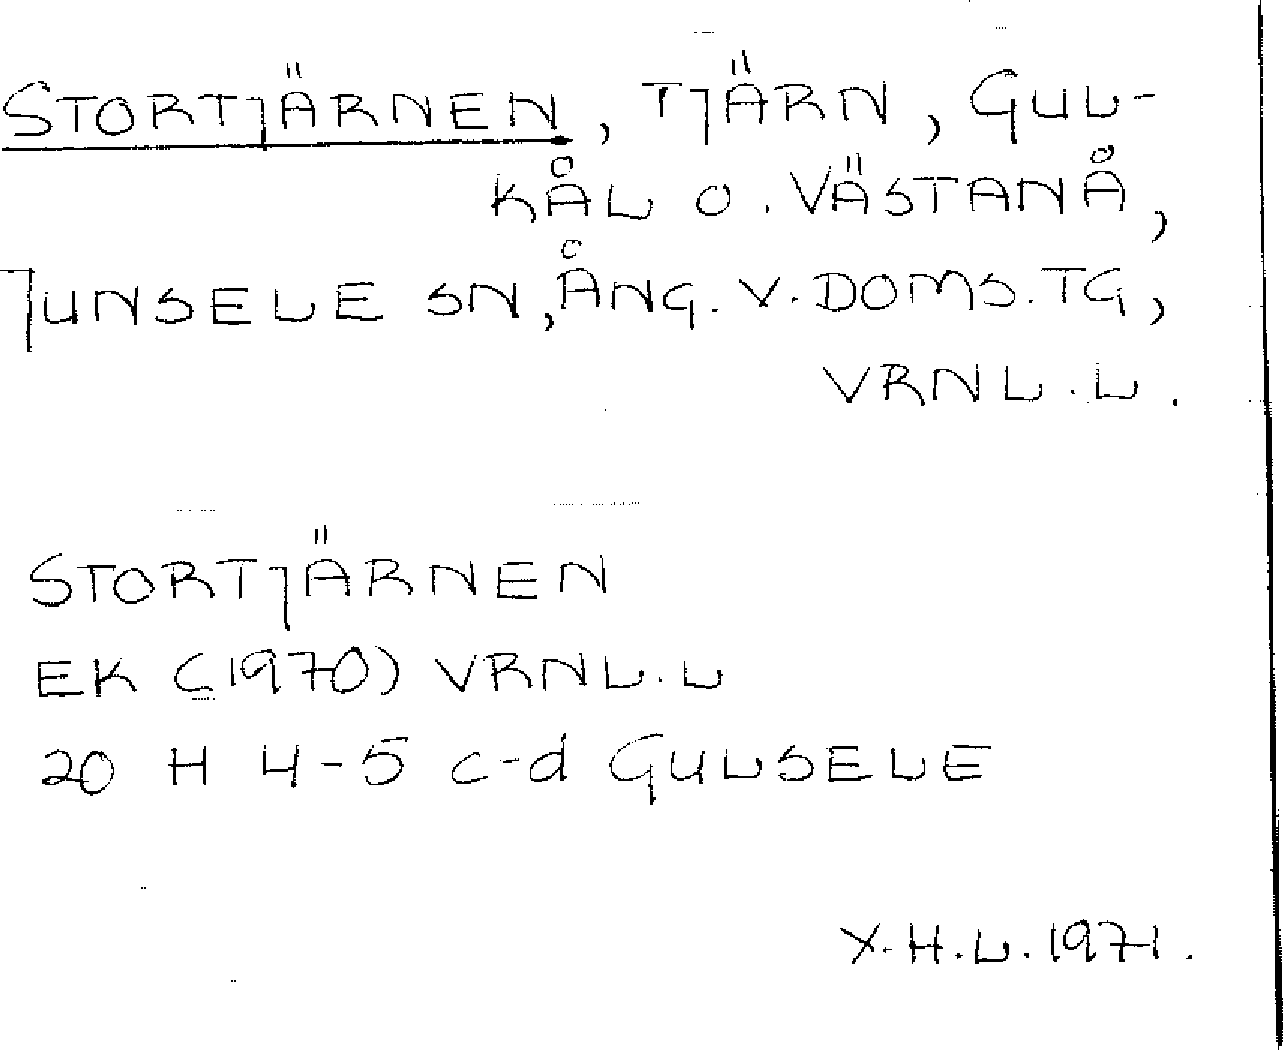 STORTJÄRNEN, TJÄRN, GUL-
KÅL O. VÄSTANÅ,
JUNSELE SN, ÅNG. V. DOMS. TG,
VRNL. L.
STORTJÄRNEN
EK (1970) VRNL. L
20 H 4-5 c-d GULSELE
X. H. L. 1971.